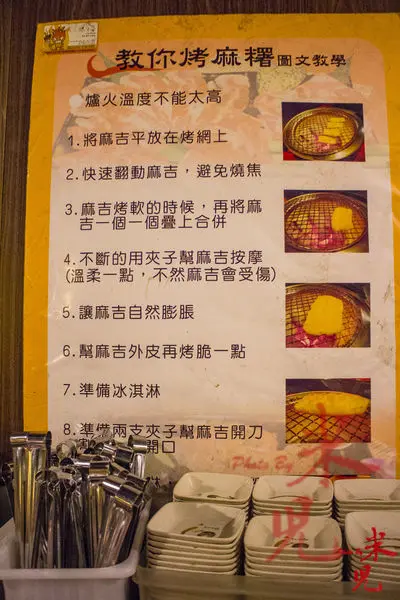 教你烤麻糬圖文教學
爐火溫度不能太高
1.將麻吉平放在烤網上
2.快速翻動麻吉，避免燒焦
3.麻吉烤軟的時候，再將麻
吉一個一個疊上合併
4.不斷的用夾子幫麻吉按摩
(溫柔一點，不然麻吉會受傷)
5.讓麻吉自然膨脹
6.幫麻吉外皮再烤脆一點
7.準備冰淇淋
8.準備兩支夾子幫麻吉開刀
開口
Photo By
米兒
米兒